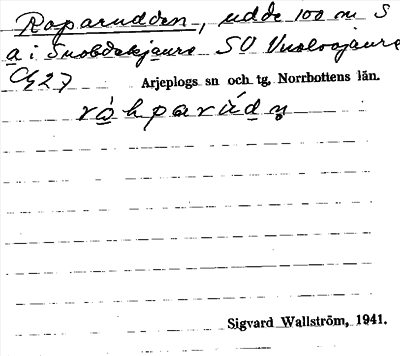 Raparudden, udde 100 m S
a i Snobdakjaure SO Vuolvojaure
Cg27
Arjeplogs sn och tg. Norrbottens län.
råhparúdn
Sigvard Wallström, 1941.